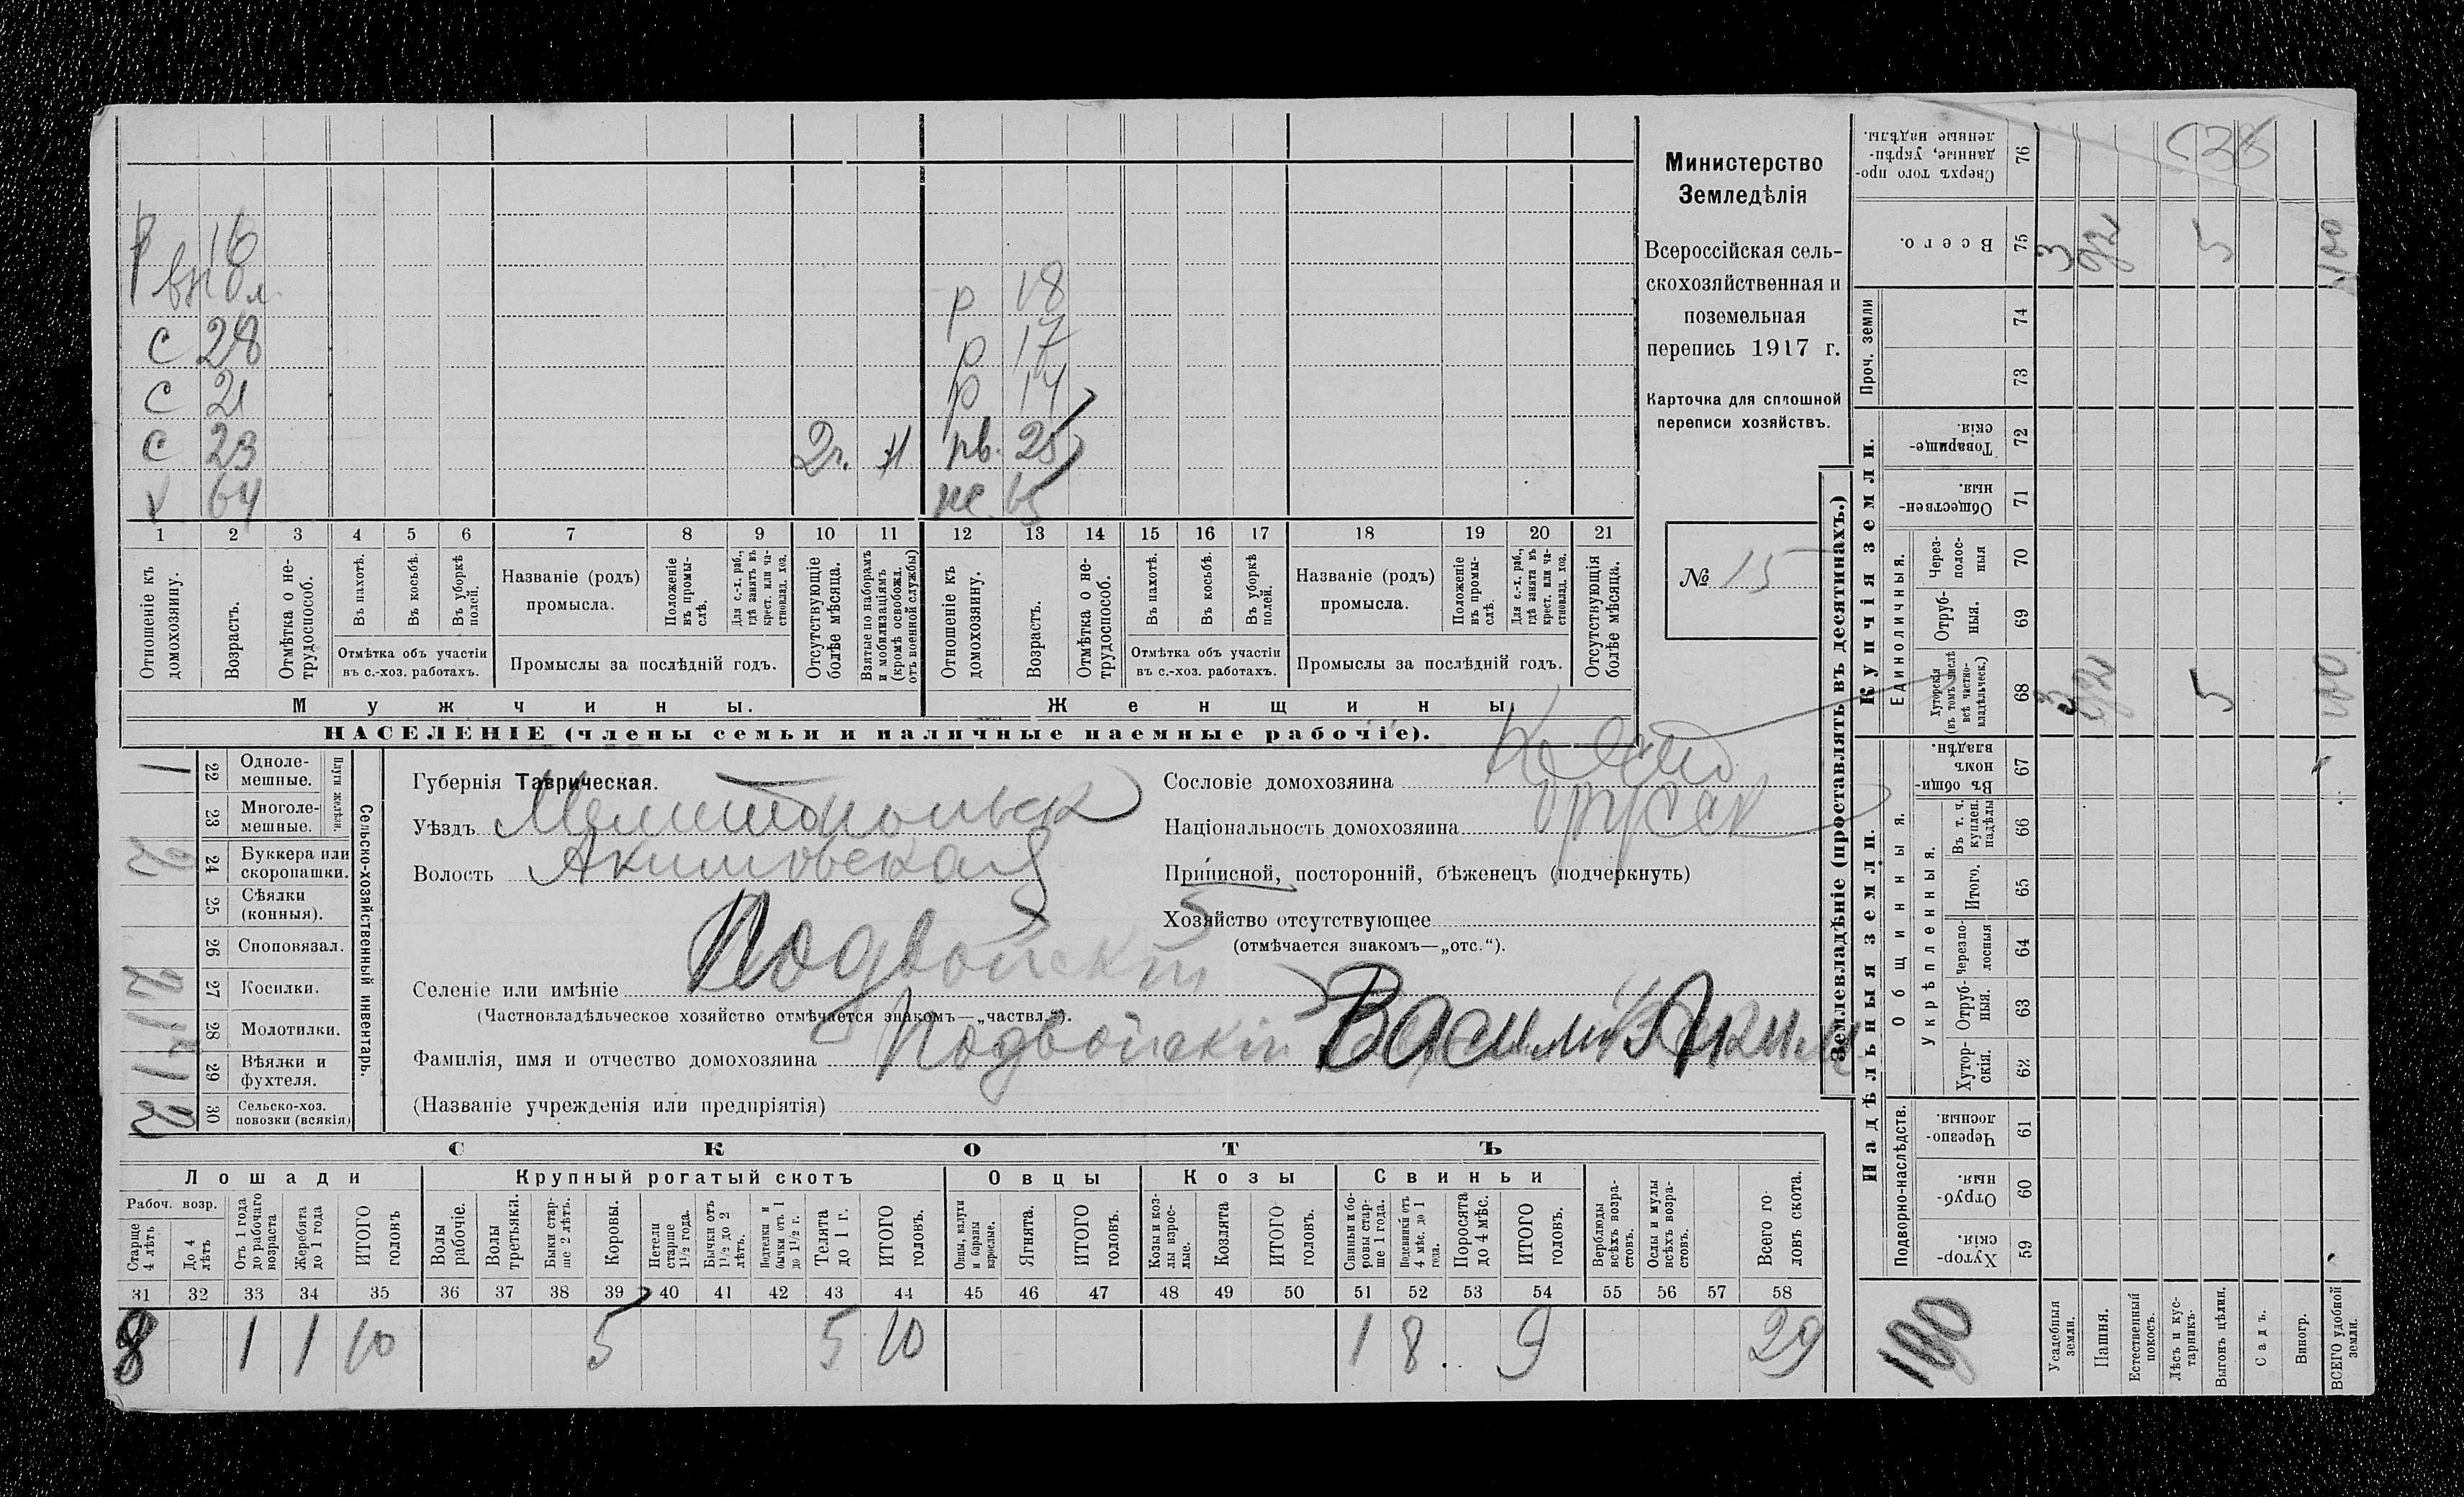 Министерство
Земледѣлія
Всероссійская сель-
скохозяйственная и
поземельная
перепись 1917 г.
Карточка для сплошной
переписи хозяйствъ.
№ 15
р 16
вн
с 28
с 21
с 23 2г.
64
р 18
р 17
р 14
25
65
1 2 3 4 5 6 7 8 9 10 11 12 13 14 15 16 17 18 19 20 21
Отношеніе къ домохозяину.
Возрастъ.
Отмѣтка о не-трудоспособ.
Въ пахотѣ.
Въ косьбѣ.
Въ уборкѣ полей.
Отмѣтка объ участіи
въ с.-хоз. работахъ.
Названіе (родъ)
промысла.
Положеніе въ промы-слѣ.
Для с.-х. раб., гдѣ занятъ въ крест. или ча-стновлад. хоз.
Промыслы за послѣдній годъ.
Отсутствующіе болѣе мѣсяца.
Взятые по наборамъ и мобилизаціямъ (кромѣ освобожд. отъ военной службы)
Отношеніе къ домохозяину.
Возрастъ.
Отмѣтка о не-трудоспособ.
Въ пахотѣ.
Въ косьбѣ.
Въ уборкѣ полей.
Отмѣтка объ участіи
въ с.-хоз. работахъ.
Названіе (родъ)
промысла.
Положеніе въ промы-слѣ.
Для с.-х. раб., гдѣ занята въ крест. или ча-стновлад. хоз.
Промыслы за послѣдній годъ.
Отсутствующія болѣе мѣсяца.
Мужчины.
Женщины.
НАСЕЛЕНІЕ (члены семьи и наличные наемные рабочіе).
Сельско-хозяйственный инвентарь.
Плуги желѣзн.
1 22 Одноле-мешные.
23 Многоле-мешные.
2 24 Буккера или скоропашки.
25 Сѣялки (конныя).
26 Споповязал.
27 Косилки.
28 Молотилки.
1 29 Вѣялки и фухтеля.
2 30 Сельско-хоз. повозки (всякія)
Губернія Таврическая.
Уѣздъ Мелитопольск
Волость Акимовская
Селеніе или имѣніе Подвойскій
(Частновладѣльческое хозяйство отмѣчается знакомъ—„частвл.").
Фамилія, имя и отчество домохозяина Подвойскій Василій Яким
(Названіе учрежденія или предпріятія)
Сословіе домохозяина
Національность домохозяина
Приписной, посторонній, бѣженецъ (подчеркнуть)
Хозяйство отсутствующее
(отмѣчается знакомъ—„отс.").
СКОТЪ
Лошади
Крупный рогатый скотъ
Овцы
Козы
Свиньи
Рабоч. возр.
Старше 4 лѣтъ
До 4 лѣтъ
Отъ 1 года до рабочаго возраста
Жеребята до 1 года
ИТОГО головъ
Волы рабочіе.
Волы третьяки.
Быки стар-ше 2 лѣтъ.
Коровы.
Нетели старше 1½ года.
Бычки отъ 1½ до 2 лѣтъ.
Подтелки и бычки отъ 1 до 1½ г.
Телята до 1 г.
ИТОГО головъ.
Овцы, валухи и бараны взрослые.
Ягнята.
ИТОГО головъ.
Козы и коз-лы взрос-лые.
Козлята
ИТОГО головъ.
Свиньи и бо-ровы стар-ше 1 года.
Подсвинки отъ 4 мѣс. до 1 года.
Поросята до 4 мѣс.
ИТОГО головъ.
Верблюды всѣхъ возра-стовъ.
Ослы и мулы всѣхъ возра-стовъ.
Всего го-ловъ скота.
31 32 33 34 35 36 37 38 39 40 41 42 43 44 45 46 47 48 49 50 51 52 53 54 55 56 57 58
8 1 1 10 5 5 10 1 8 9 29
Землевладѣніе (проставлять въ десятинахъ.)
Надѣльныя земли.
Купчія земли.
Проч. земли
Подворно-наслѣдств.
Общинныя.
Укрѣпленныя.
Единоличныя.
Хутор-скія. 59
Отруб-ныя. 60
Черезпо-лосныя 61
Хутор-скія. 62
Отруб-ныя. 63
Черезпо-лосныя 64
Итого. 65
Въ т. ч. куплен. надѣлы 66
Въ общин-номъ владѣн. 67
Хуторскія (въ томъ числѣ всѣ частно-владѣльческ.) 68
Отруб-ныя. 69
Через-полос-ныя 70
Обществен-ныя. 71
Товарище-скія. 72
73
74
Всего. 75
Сверхъ того про-данные, укрѣп-ленные надѣлы. 76
Усадебныя земли. 3 3
Пашня. 92 92
Естественный покосъ.
Лѣсъ и кус-тарникъ.
Выгонъ цѣлин. 5 5
Садъ.
Виногр.
ВСЕГО удобной земли. 100 100